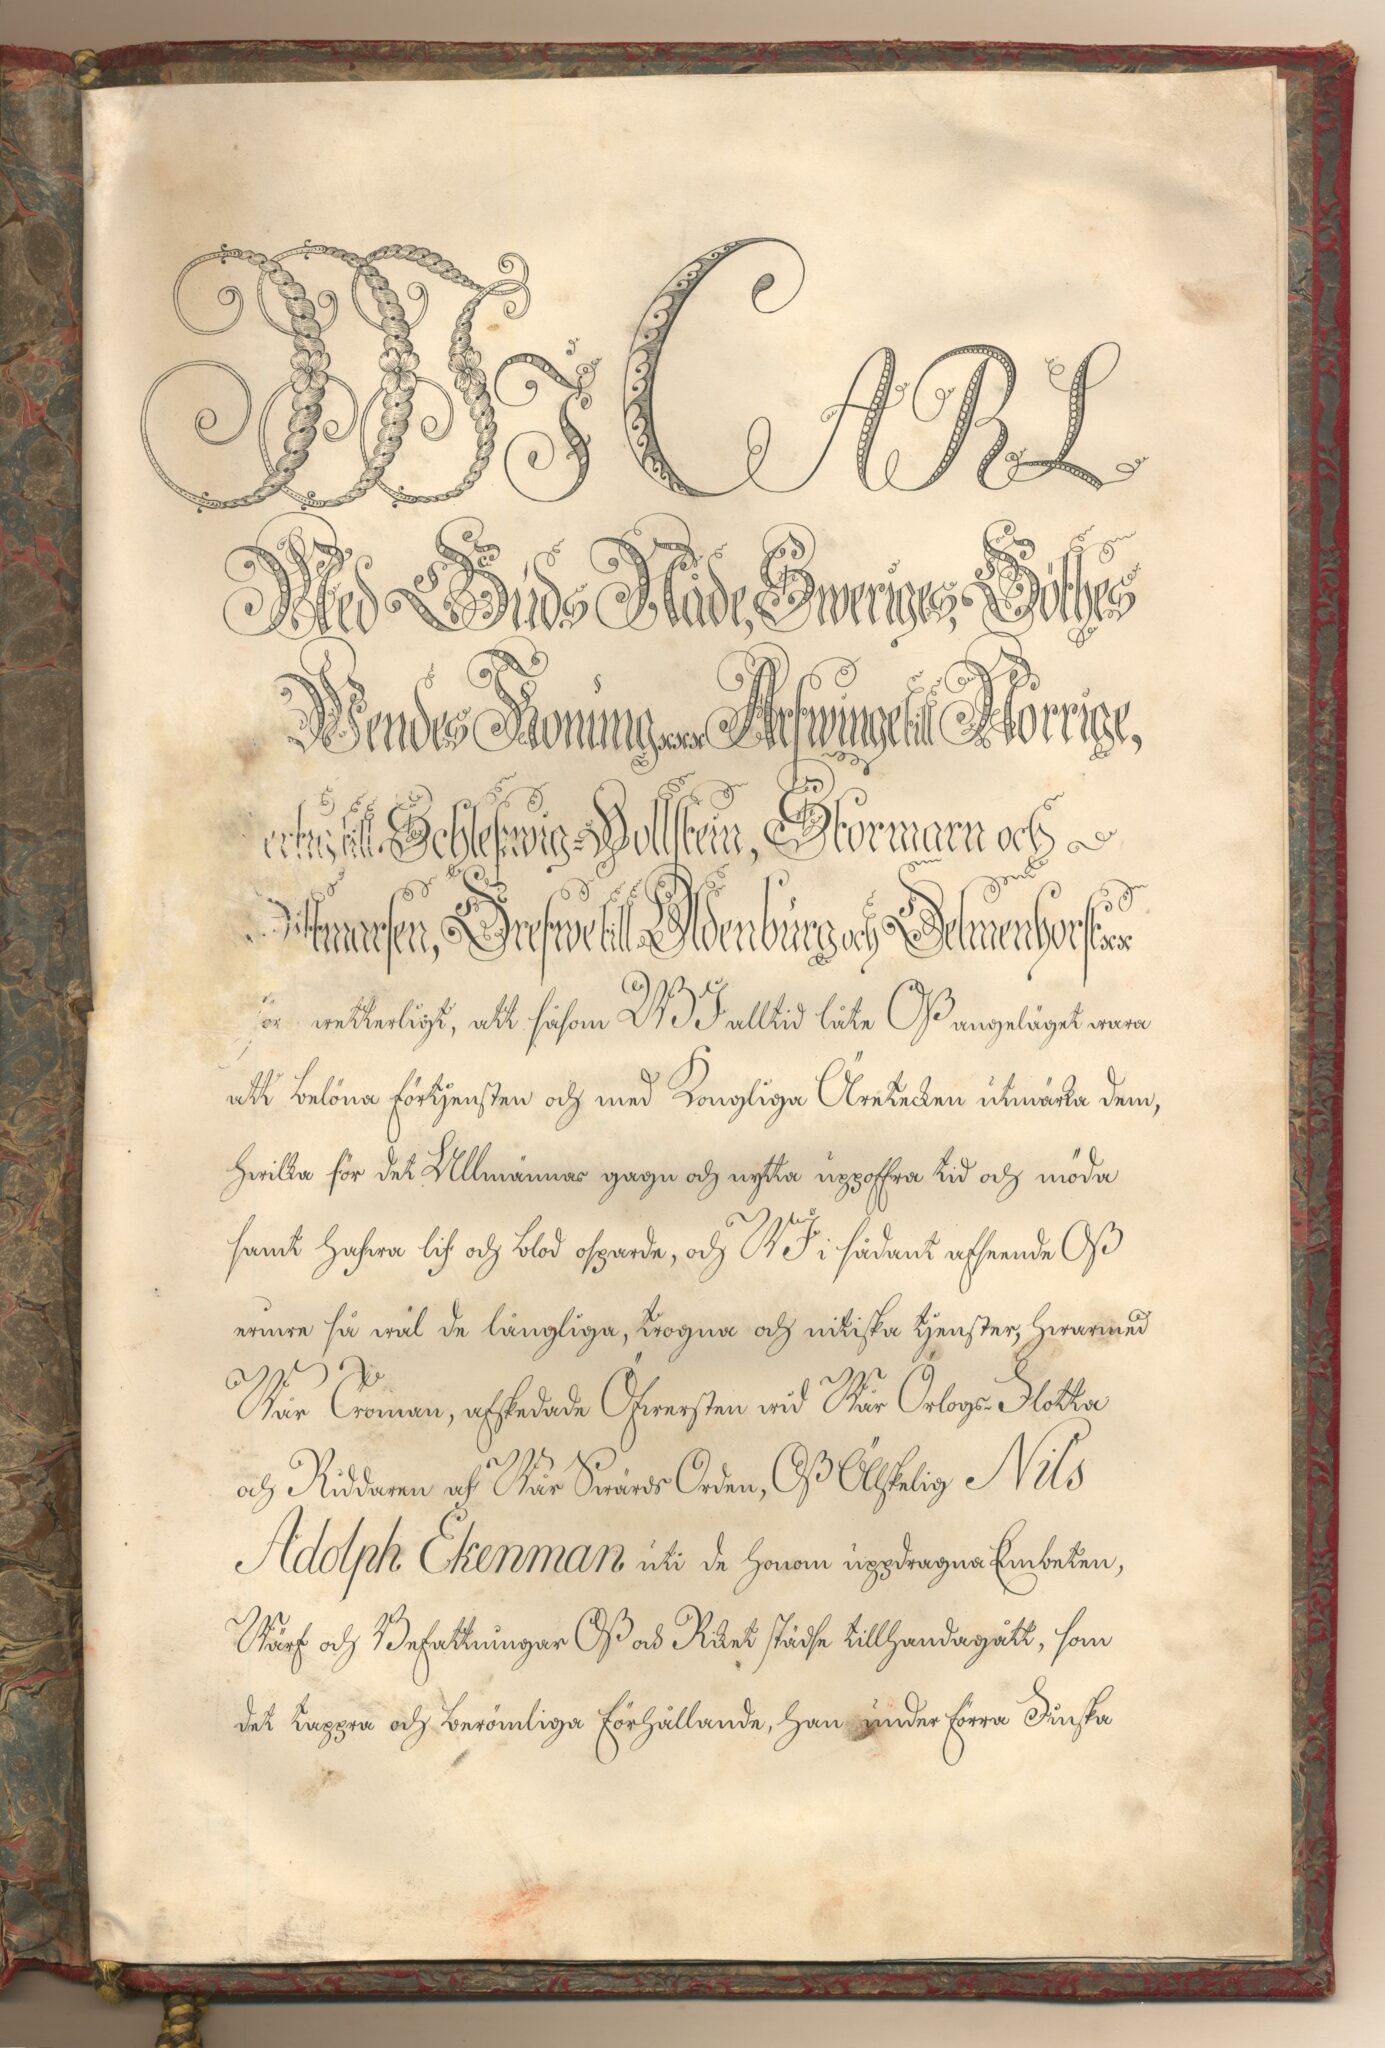 WJ CARL
Med Gůds Nåde, Sweriges, Göthes
Wendes Konung xxx Arfwinge till Norrige,
ertug till Schleßwig-Hollstein, Stormarn och
Dittmarsen, Grefwe till Oldenbůrg och Delmenhorst xx
Gör wetterligt, att såsom WJ alltid låte Oß angeläget wara
att belöna förtjensten och med Kongliga Äretecken utmärka dem,
hwilka för det Allmännas gagn och nytta uppoffra tid och möda
samt hafwa lif och blod osparde, och WJ i sådant afseende Oß
erinre så wäl de långliga, trogna och nitiska tjenster, hwarmed
Wår Troman, afskedade Öfwersten wid Wår Örlogs-Flotta
och Riddaren af Wår Swärds Orden, Oß Älskelig Nils
Adolph Ekenman uti de honom uppdragna Embeten,
Wärf och Befattningar Oß och Riket städse tillhandagått, som
det tappra och berömliga förhållande, han under förra Finska